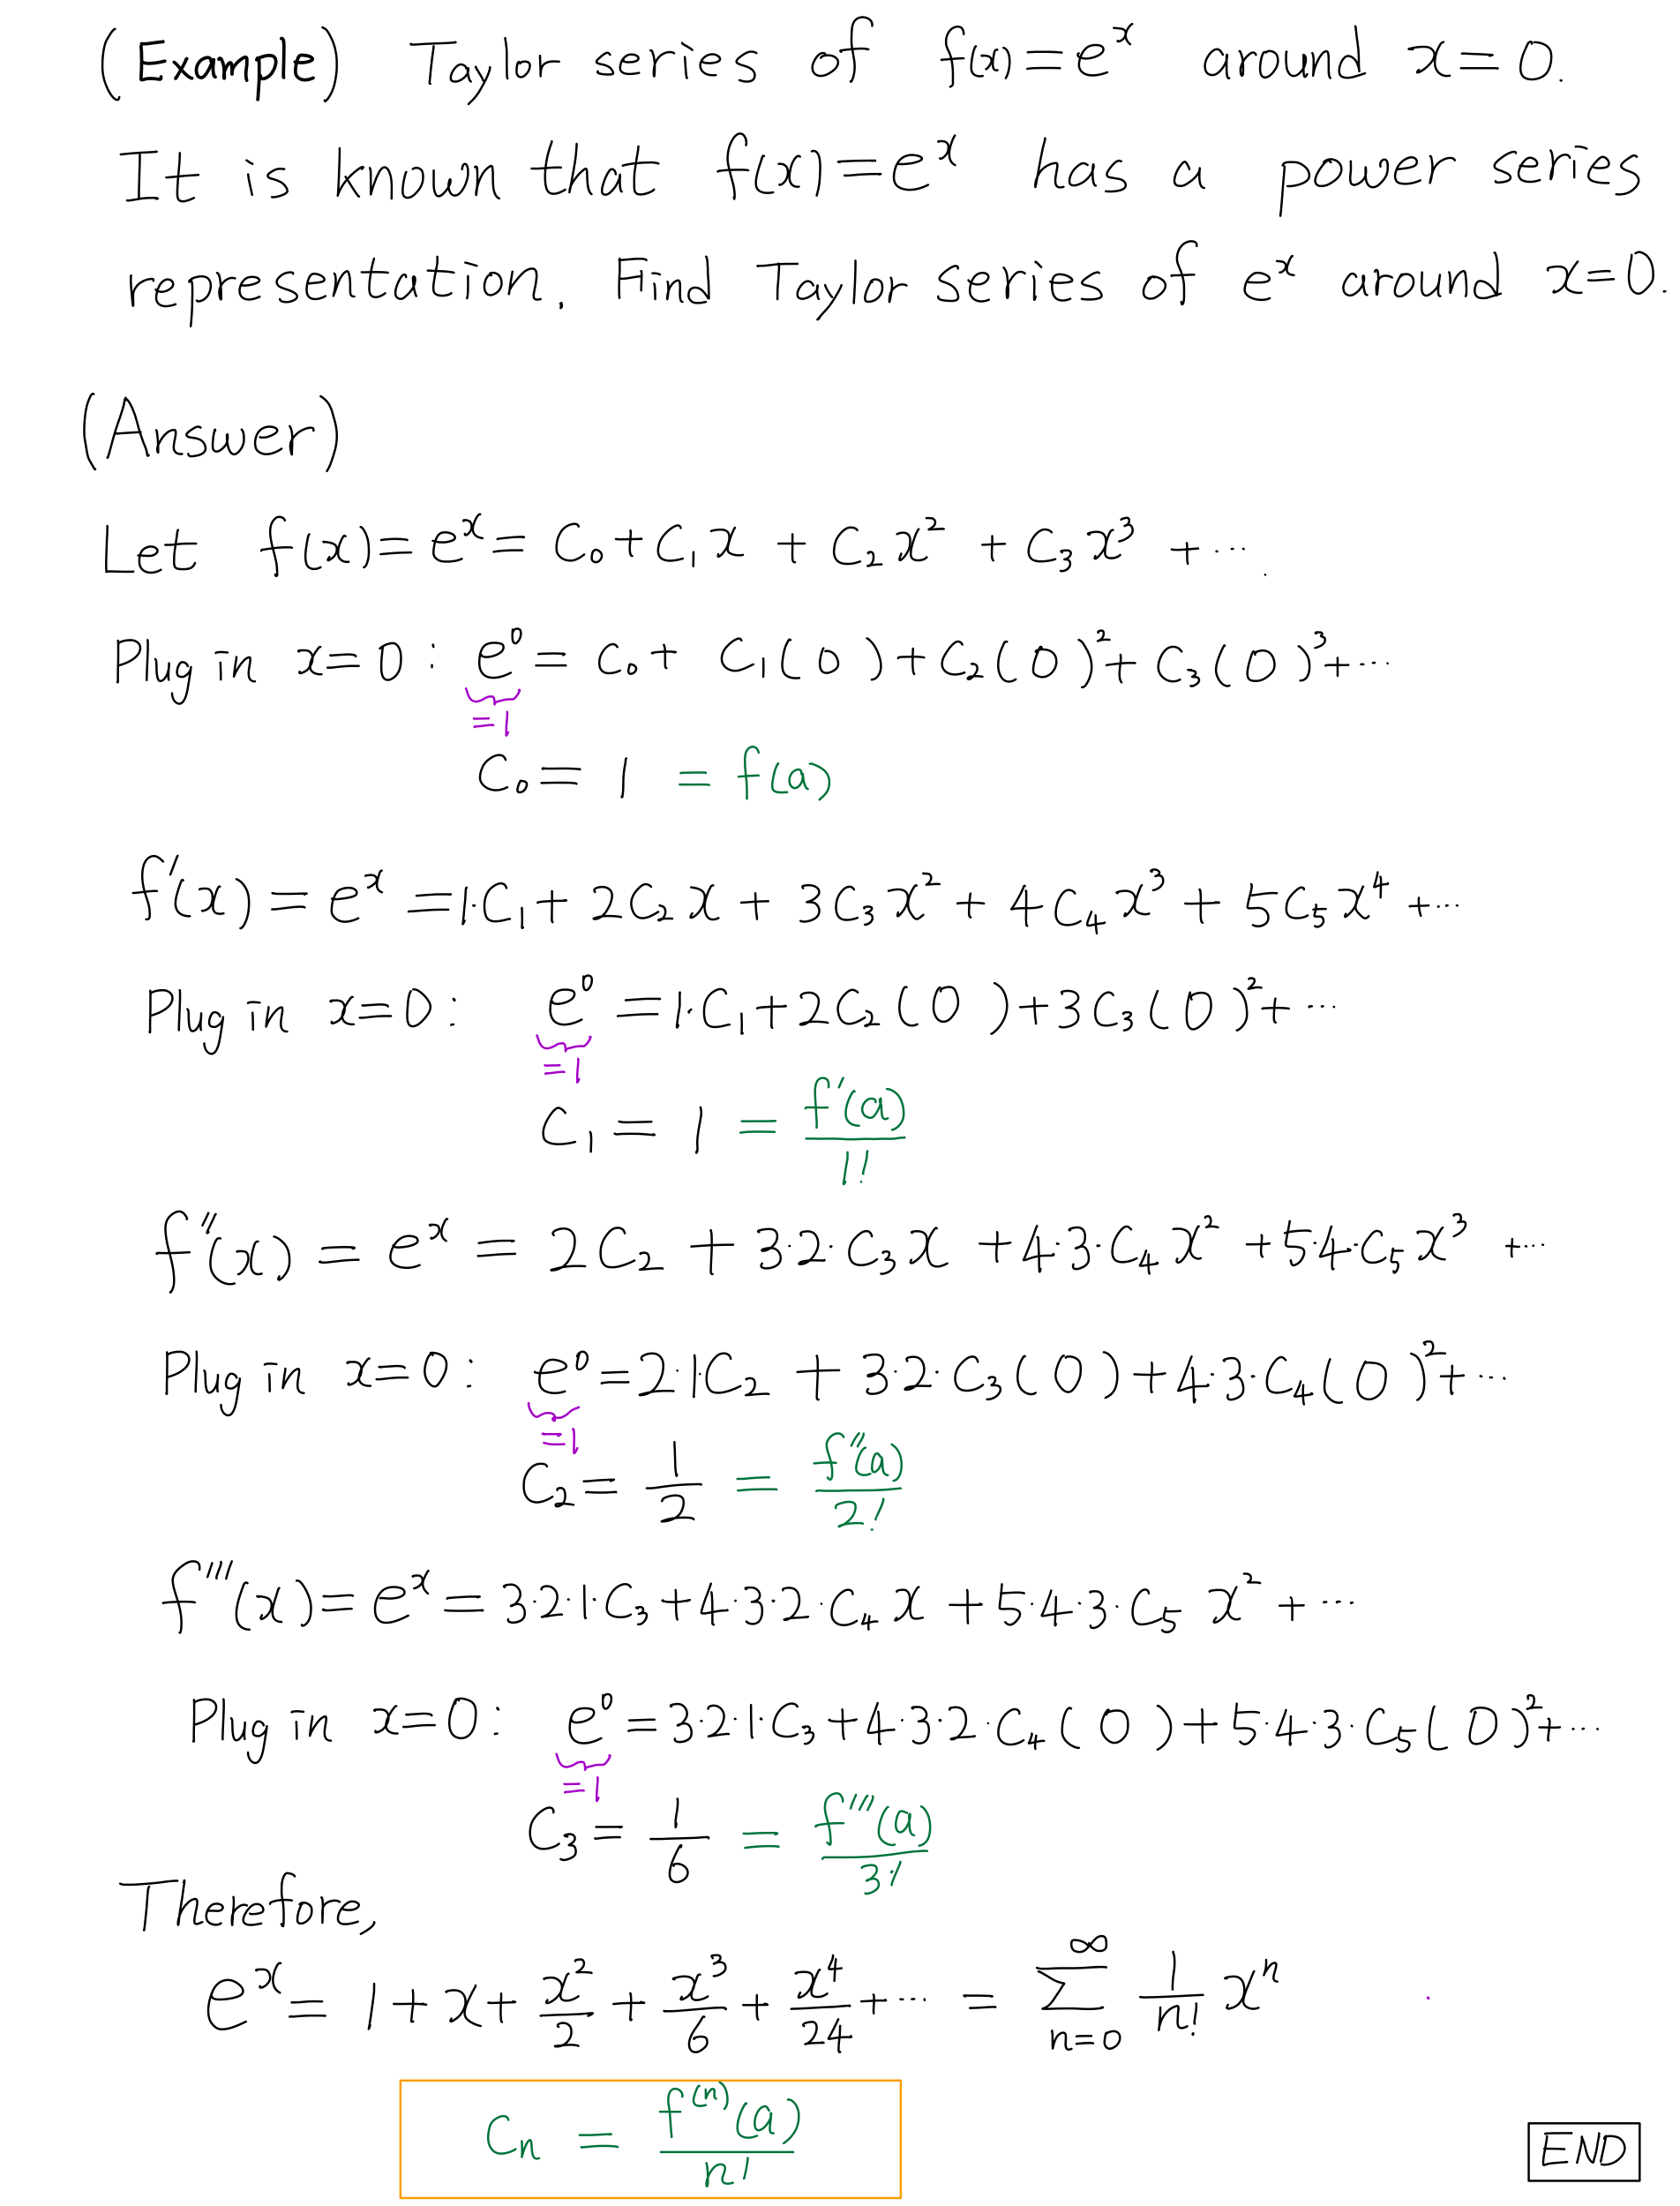 (Example) Taylor series of f(x) = e^x around x = 0.
It is known that f(x) = e^x has a power series
representation. Find Taylor series of e^x around x = 0.
(Answer)
Let f(x) = e^x = C₀ + C₁x + C₂x² + C₃x³ + ⋯.
Plug in x = 0 : e⁰ = C₀ + C₁(0) + C₂(0)² + C₃(0)³ + ⋯
= 1
C₀ = 1 = f(a)
f'(x) = e^x = 1·C₁ + 2C₂x + 3C₃x² + 4C₄x³ + 5C₅x⁴ + ⋯
Plug in x = 0 : e⁰ = 1·C₁ + 2C₂(0) + 3C₃(0)² + ⋯
= 1
C₁ = 1 = f'(a)/1!
f''(x) = e^x = 2C₂ + 3·2·C₃x + 4·3·C₄x² + 5·4·C₅x³ + ⋯
Plug in x = 0 : e⁰ = 2·1·C₂ + 3·2·C₃(0) + 4·3·C₄(0)² + ⋯
= 1
C₂ = 1/2 = f''(a)/2!
f'''(x) = e^x = 3·2·1·C₃ + 4·3·2·C₄x + 5·4·3·C₅x² + ⋯
Plug in x = 0 : e⁰ = 3·2·1·C₃ + 4·3·2·C₄(0) + 5·4·3·C₅(0)² + ⋯
= 1
C₃ = 1/6 = f'''(a)/3!
Therefore,
e^x = 1 + x + x²/2 + x³/6 + x⁴/24 + ⋯ = ∑_{n=0}^{∞} 1/n! x^n
Cn = f^(n)(a)/n!
END